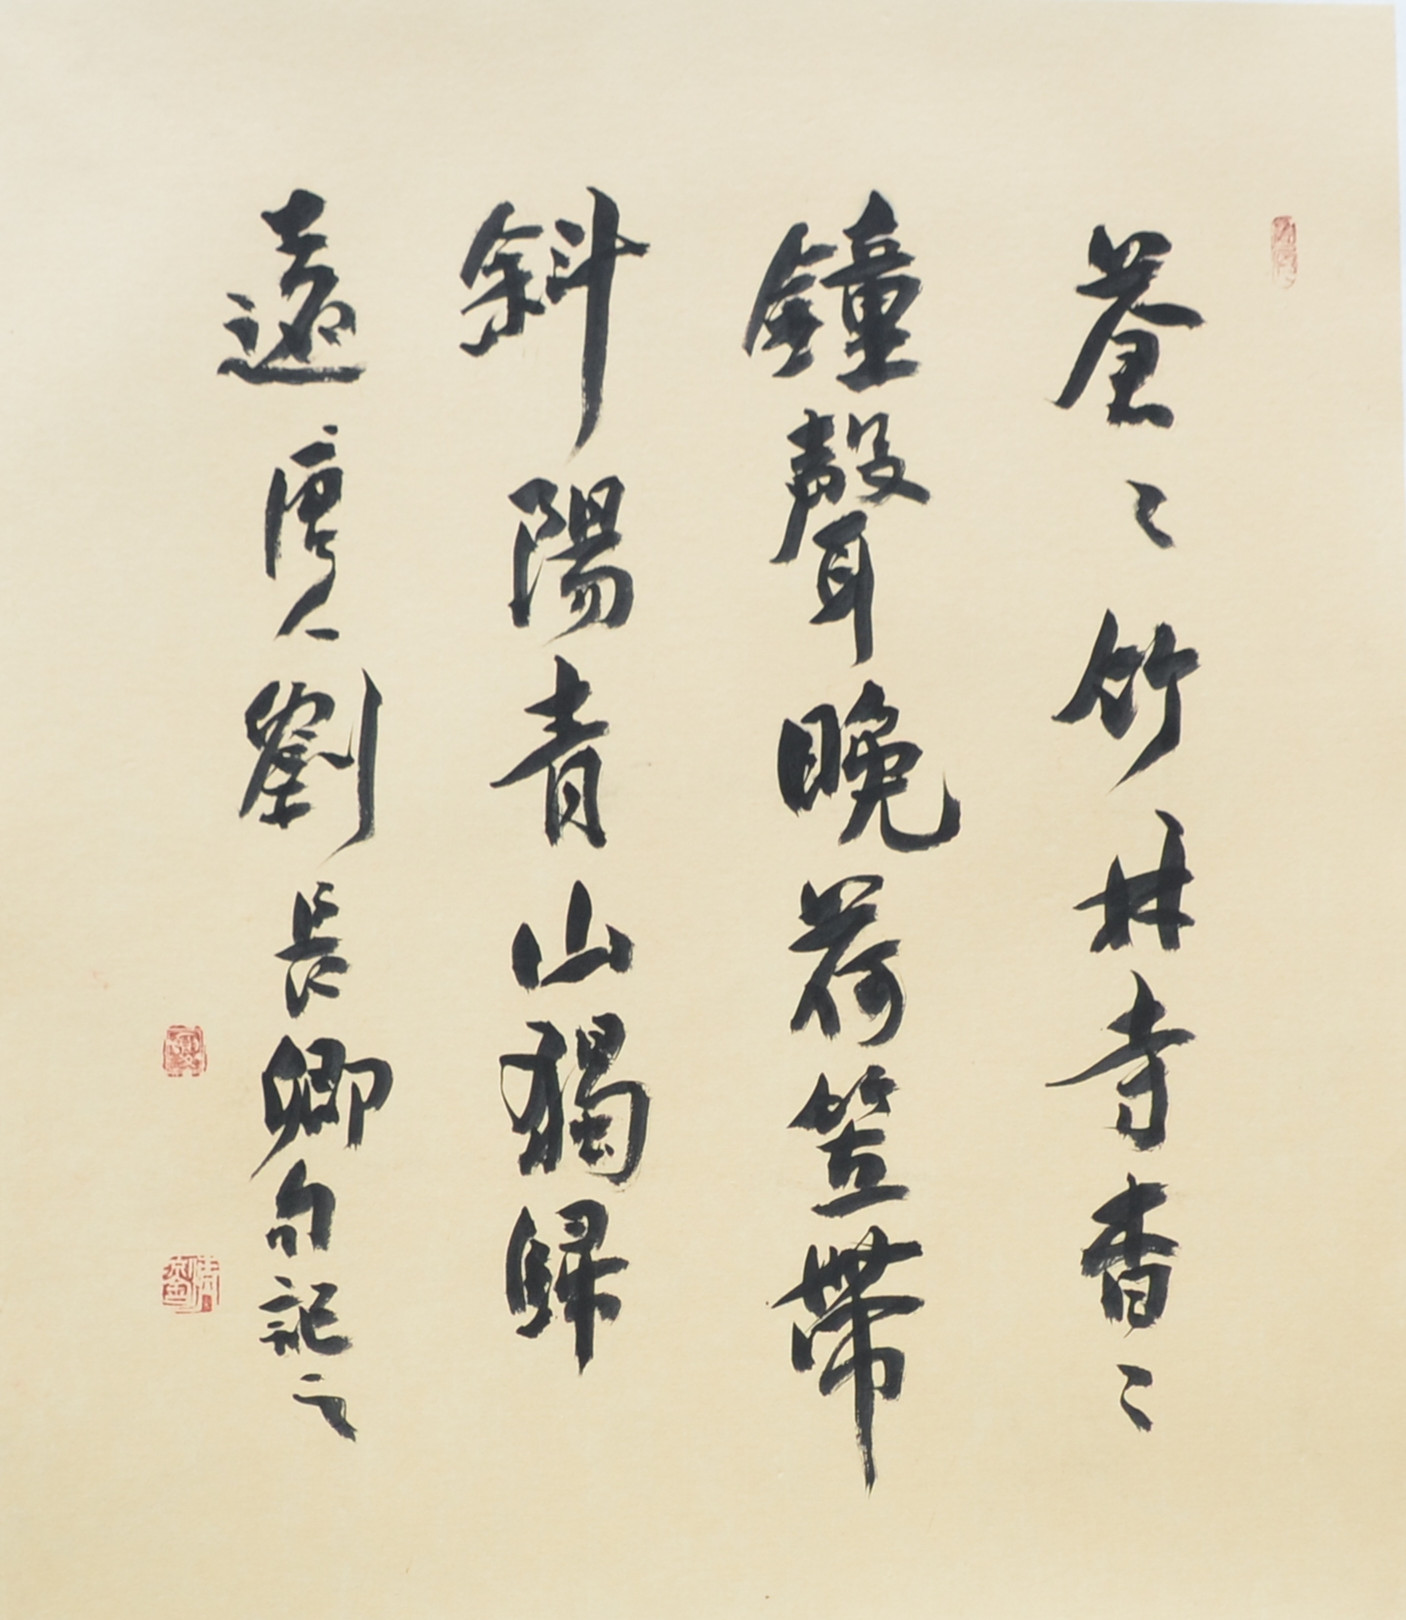 蒼〻竹林寺杳〻
鐘聲晚荷笠帶
斜陽青山獨歸
遠唐人劉長卿句記之